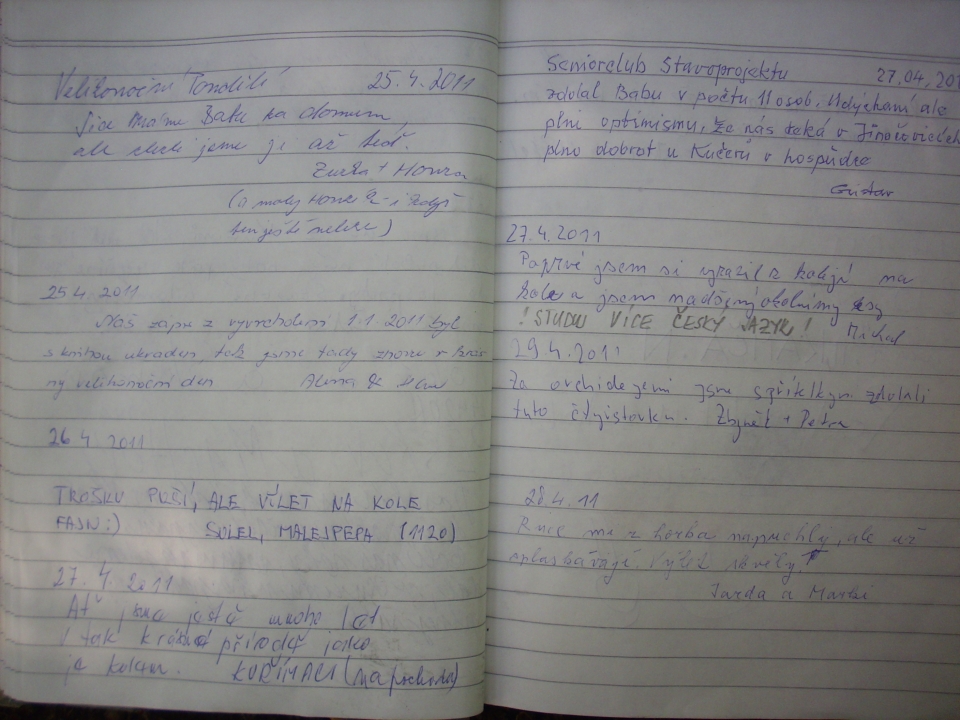 Velikonoční Pondělí 25.4.2011
Sice máme Babu za domem,
ale jsme až teď.
+ Honza
(a malý
ten ještě neleze)
25 4 2011
Náš zápis z vyvrcholení 1.1.2011 byl
s knihou ukraden, tož jsme tady znovu v krás
ný velikonoční den Alena &
26 4 2011
TROŠKU PRŠÍ, ALE VÍLET NA KOLE
FAJN:) SOLEL, MALEJPEPA (1120)
27. 4. 2011
Ať jsme ještě mnoho let
v tak krásné přírodě jako
je kolem. KUŘIMÁCI (na pochodu)
Seniorclub Stavoprojektu 27.04.201
zdolal Babu v počtu 11 osob. Udýchaní ale
plni optimismu, že nás čeká v Jinačovicích
plno dobrot u Kučerů v hospůdce
Gustav
27.4.2011
Poprvé jsem si vyrazil z kolejí na
kole a jsem nadšený okolními lesy
! STUDUJ VÍCE ČESKÝ JAZYK! Michal
29 4. 2011
Za orchidejemi jsme zdolali
tuto čtyřstovku. Zbyněk + Petra
28.4.11
Ruce me z horba napuchly, ale už
splaskávají. Výlet skvělý.
Jarda a